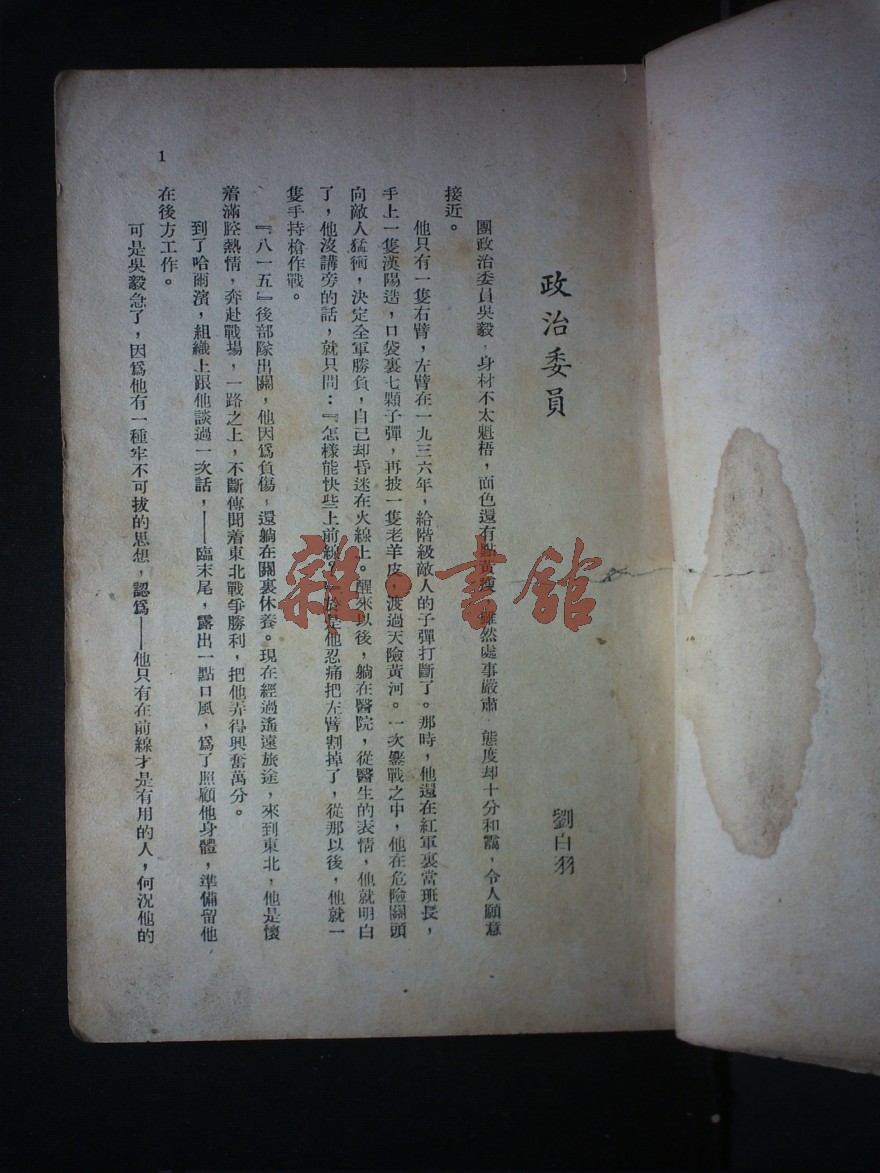 政治委員
劉白羽
團政治委員吳毅，身材不太魁梧，面色還有點黃瘦，雖然處事嚴肅，態度却十分和靄，令人願意
接近。
他只有一隻右臂，左臂在一九三六年，給階級敵人的子彈打斷了。那時，他還在紅軍裏當班長，
手上一隻漢陽造，口袋裏七顆子彈，再披一隻老羊皮，渡過天險黃河。一次鏖戰之中，他在危險關頭
向敵人猛衝，決定全軍勝負，自己却昏迷在火線上。醒來以後，躺在醫院，從醫生的表情，他就明白
了，他沒講旁的話，就只問：『怎樣能快些上前線？』於是他忍痛把左臂割掉了，從那以後，他就一
隻手持槍作戰。
『八一五』後部隊出關，他因爲負傷，還躺在關裏休養。現在經過遙遠旅途，來到東北，他是懷
着滿腔熱情，奔赴戰場，一路之上，不斷傳聞着東北戰爭勝利，把他弄得興奮萬分。
到了哈爾濱，組織上跟他談過一次話，——臨末尾，露出一點口風，爲了照顧他身體，準備留他
在後方工作。
可是吳毅急了，因爲他有一種牢不可拔的思想，認爲——他只有在前線才是有用的人，何況他的
1
雜·書館